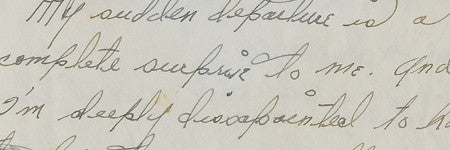 My sudden departure is a
complete surprise to me. And
I'm deeply disappointed to